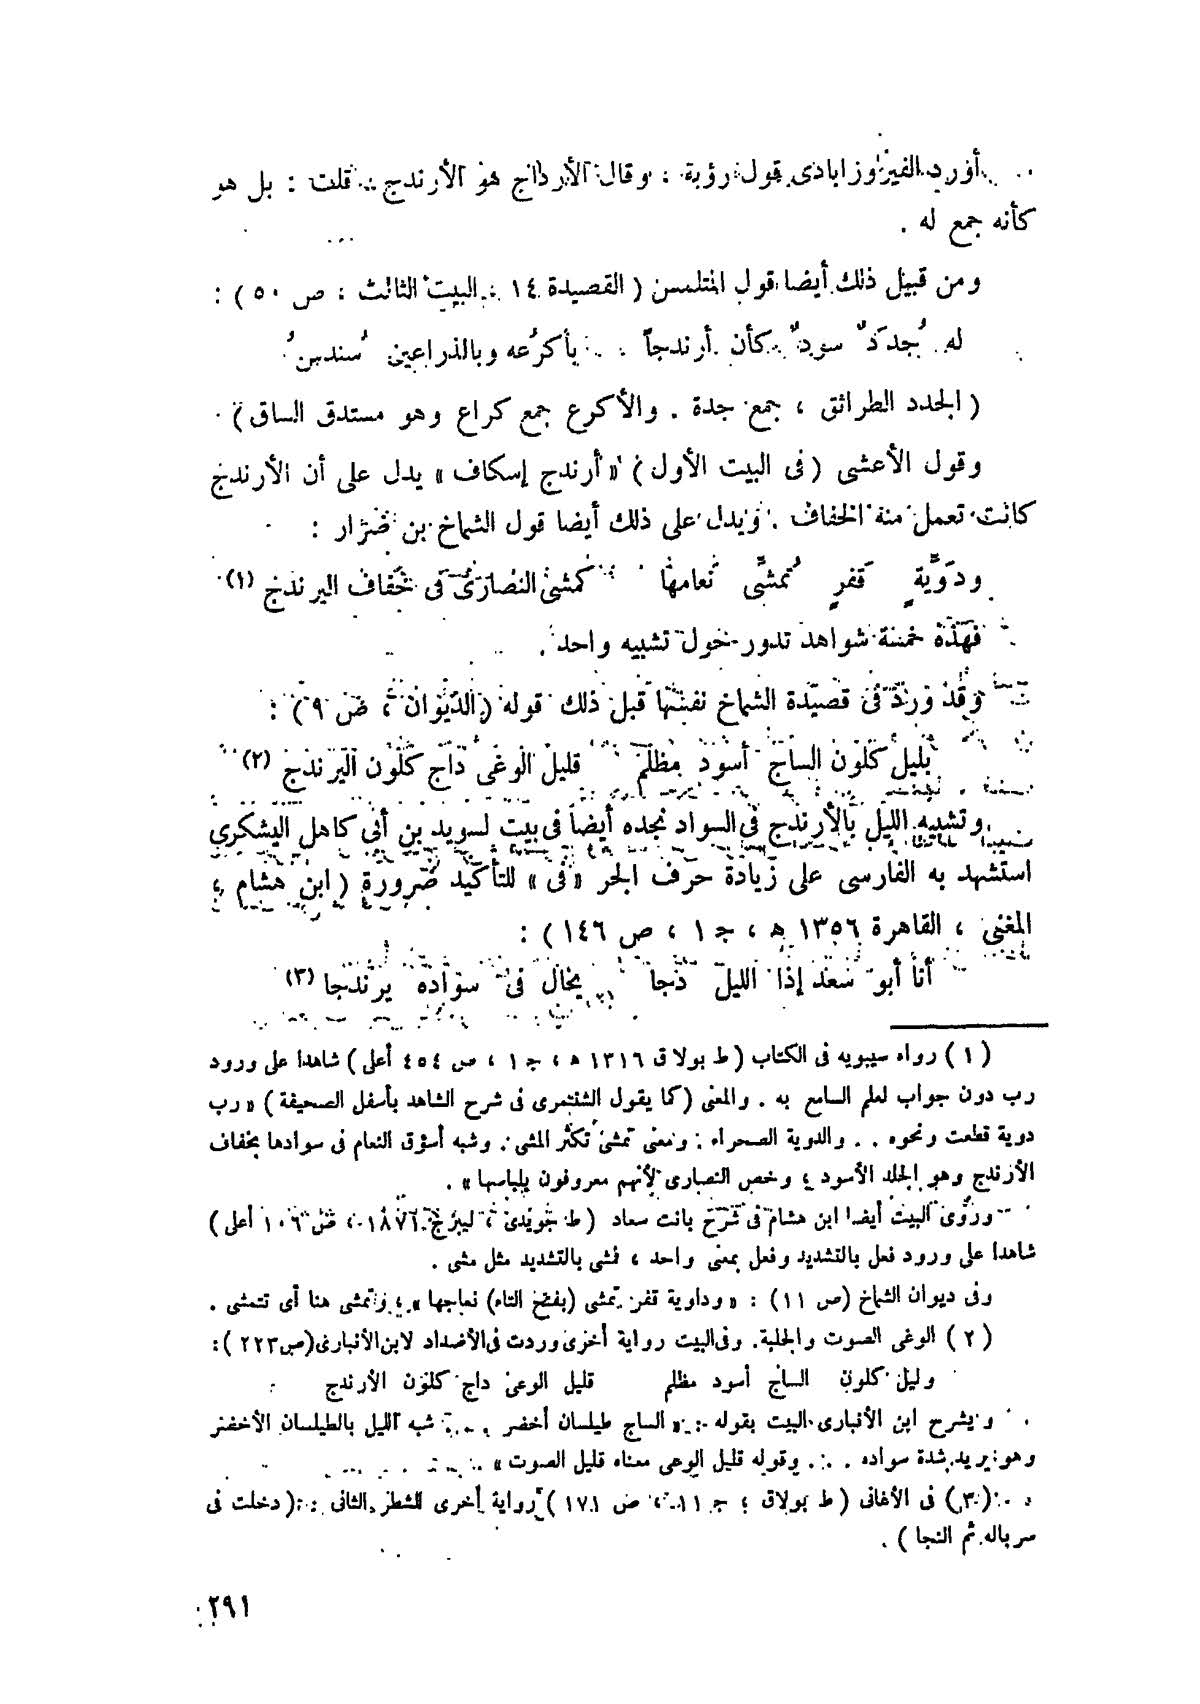 أورد الفيروزابادى قول رؤبة ، وقال الأرداج هو الأرندج . قلت : بل هو
كأنه جمع له .
ومن قبيل ذلك أيضا قول المتلمس ( القصيدة ١٤ ، البيت الثالث ، ص ٥٠ ) :
له جُددٌ سودٌ كأن أرندجاً بأكرُعه وبالذراعين سُندسُ
( الجدد الطرائق ، جمع جدة . والأكرع جمع كراع وهو مستدق الساق )
وقول الأعشى ( فى البيت الأول ) « أرندج إسكاف » يدل على أن الأرندج
كانت تعمل منه الخفاف . ويدل على ذلك أيضا قول الشماخ بن ضرار :
ودوّيةٍ قفرٍ تُمشّى نَعامها كمشى النصارى فى خفاف اليرندج (١)
فهذه خمسة شواهد تدور حول تشبيه واحد .
وقد ورد فى قصيدة الشماخ نفسها قبل ذلك قوله ( الديوان ، ص ٩ ) :
بليل كلون الساج أسود مظلم قليل الوغى داج كلون اليرندج (٢)
وتشبيه الليل بالأرندج فى السواد نجده أيضاً فى بيت لسويد بن أبى كاهل اليشكرى
استشهد به الفارسى على زيادة حرف الجر « فى » للتأكيد ضرورة ( ابن هشام ،
المغنى ، القاهرة ١٣٥٦ ه ، ج ١ ، ص ١٤٦ ) :
أنا أبو سعد إذا الليل دجا يخال فى سواده يرندجا (٣)
( ١ ) رواه سيبويه فى الكتاب ( ط بولاق ١٣١٦ ه ، ج ١ ، ص ٤٥٤ أعلى ) شاهدا على ورود
رب دون جواب لعلم السامع به . والمعنى ( كما يقول الشنتمرى فى شرح الشاهد بأسفل الصحيفة ) « رب
دوية قطعت ونحوه . . والدوية الصحراء . ومعنى تمشى تكثر المشى . وشبه أسؤق النعام فى سوادها بخفاف
الأرندج وهو الجلد الأسود ؛ وخص النصارى لأنهم معروفون بلباسها » .
وروى البيت أيضا ابن هشام فى شرح بانت سعاد ( ط جويدى ، ليبزج ١٨٧٦ ، ص ١٠٦ أعلى )
شاهدا على ورود فعل بالتشديد وفعل بمعنى واحد ، فمشى بالتشديد مثل مشى .
وفى ديوان الشماخ ( ص ١١ ) : « وداوية قفر تمشى ( بفتح التاء ) نعاجها » ؛ وتمشى هنا أى تتمشى .
( ٢ ) الوغى الصوت والجلبة . وفى البيت رواية أخرى وردت فى الأضداد لابن الأنبارى ( ص ٢٢٣ ) :
وليل كلون الساج أسود مظلم قليل الوعى داج كلون الأرندج
ويشرح ابن الأنبارى البيت بقوله : « الساج طيلسان أخضر . . . شبه الليل بالطيلسان الأخضر
وهو يريد شدة سواده . . . وقوله قليل الوعى معناه قليل الصوت » .
( ٣ ) فى الأغانى ( ط بولاق ، ج ١١ ، ص ١٧١ ) رواية أخرى للشطر الثانى : ( دخلت فى
سرباله ثم النجا ) .
٢٩١